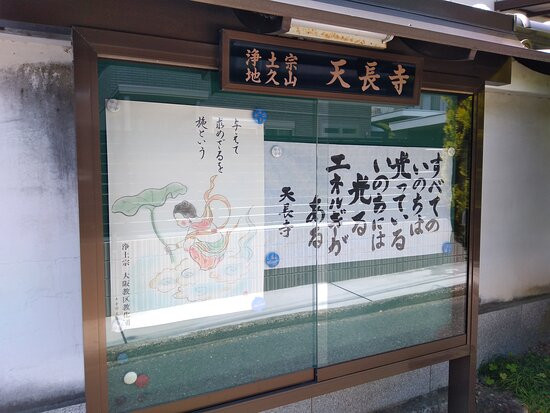 浄土宗
地久山
天長寺
与えて
求めざるを
施という
浄土宗 大阪教区教化
すべての
いのちは
光っている
いのちには
光る
エネルギーが
ある
天長寺